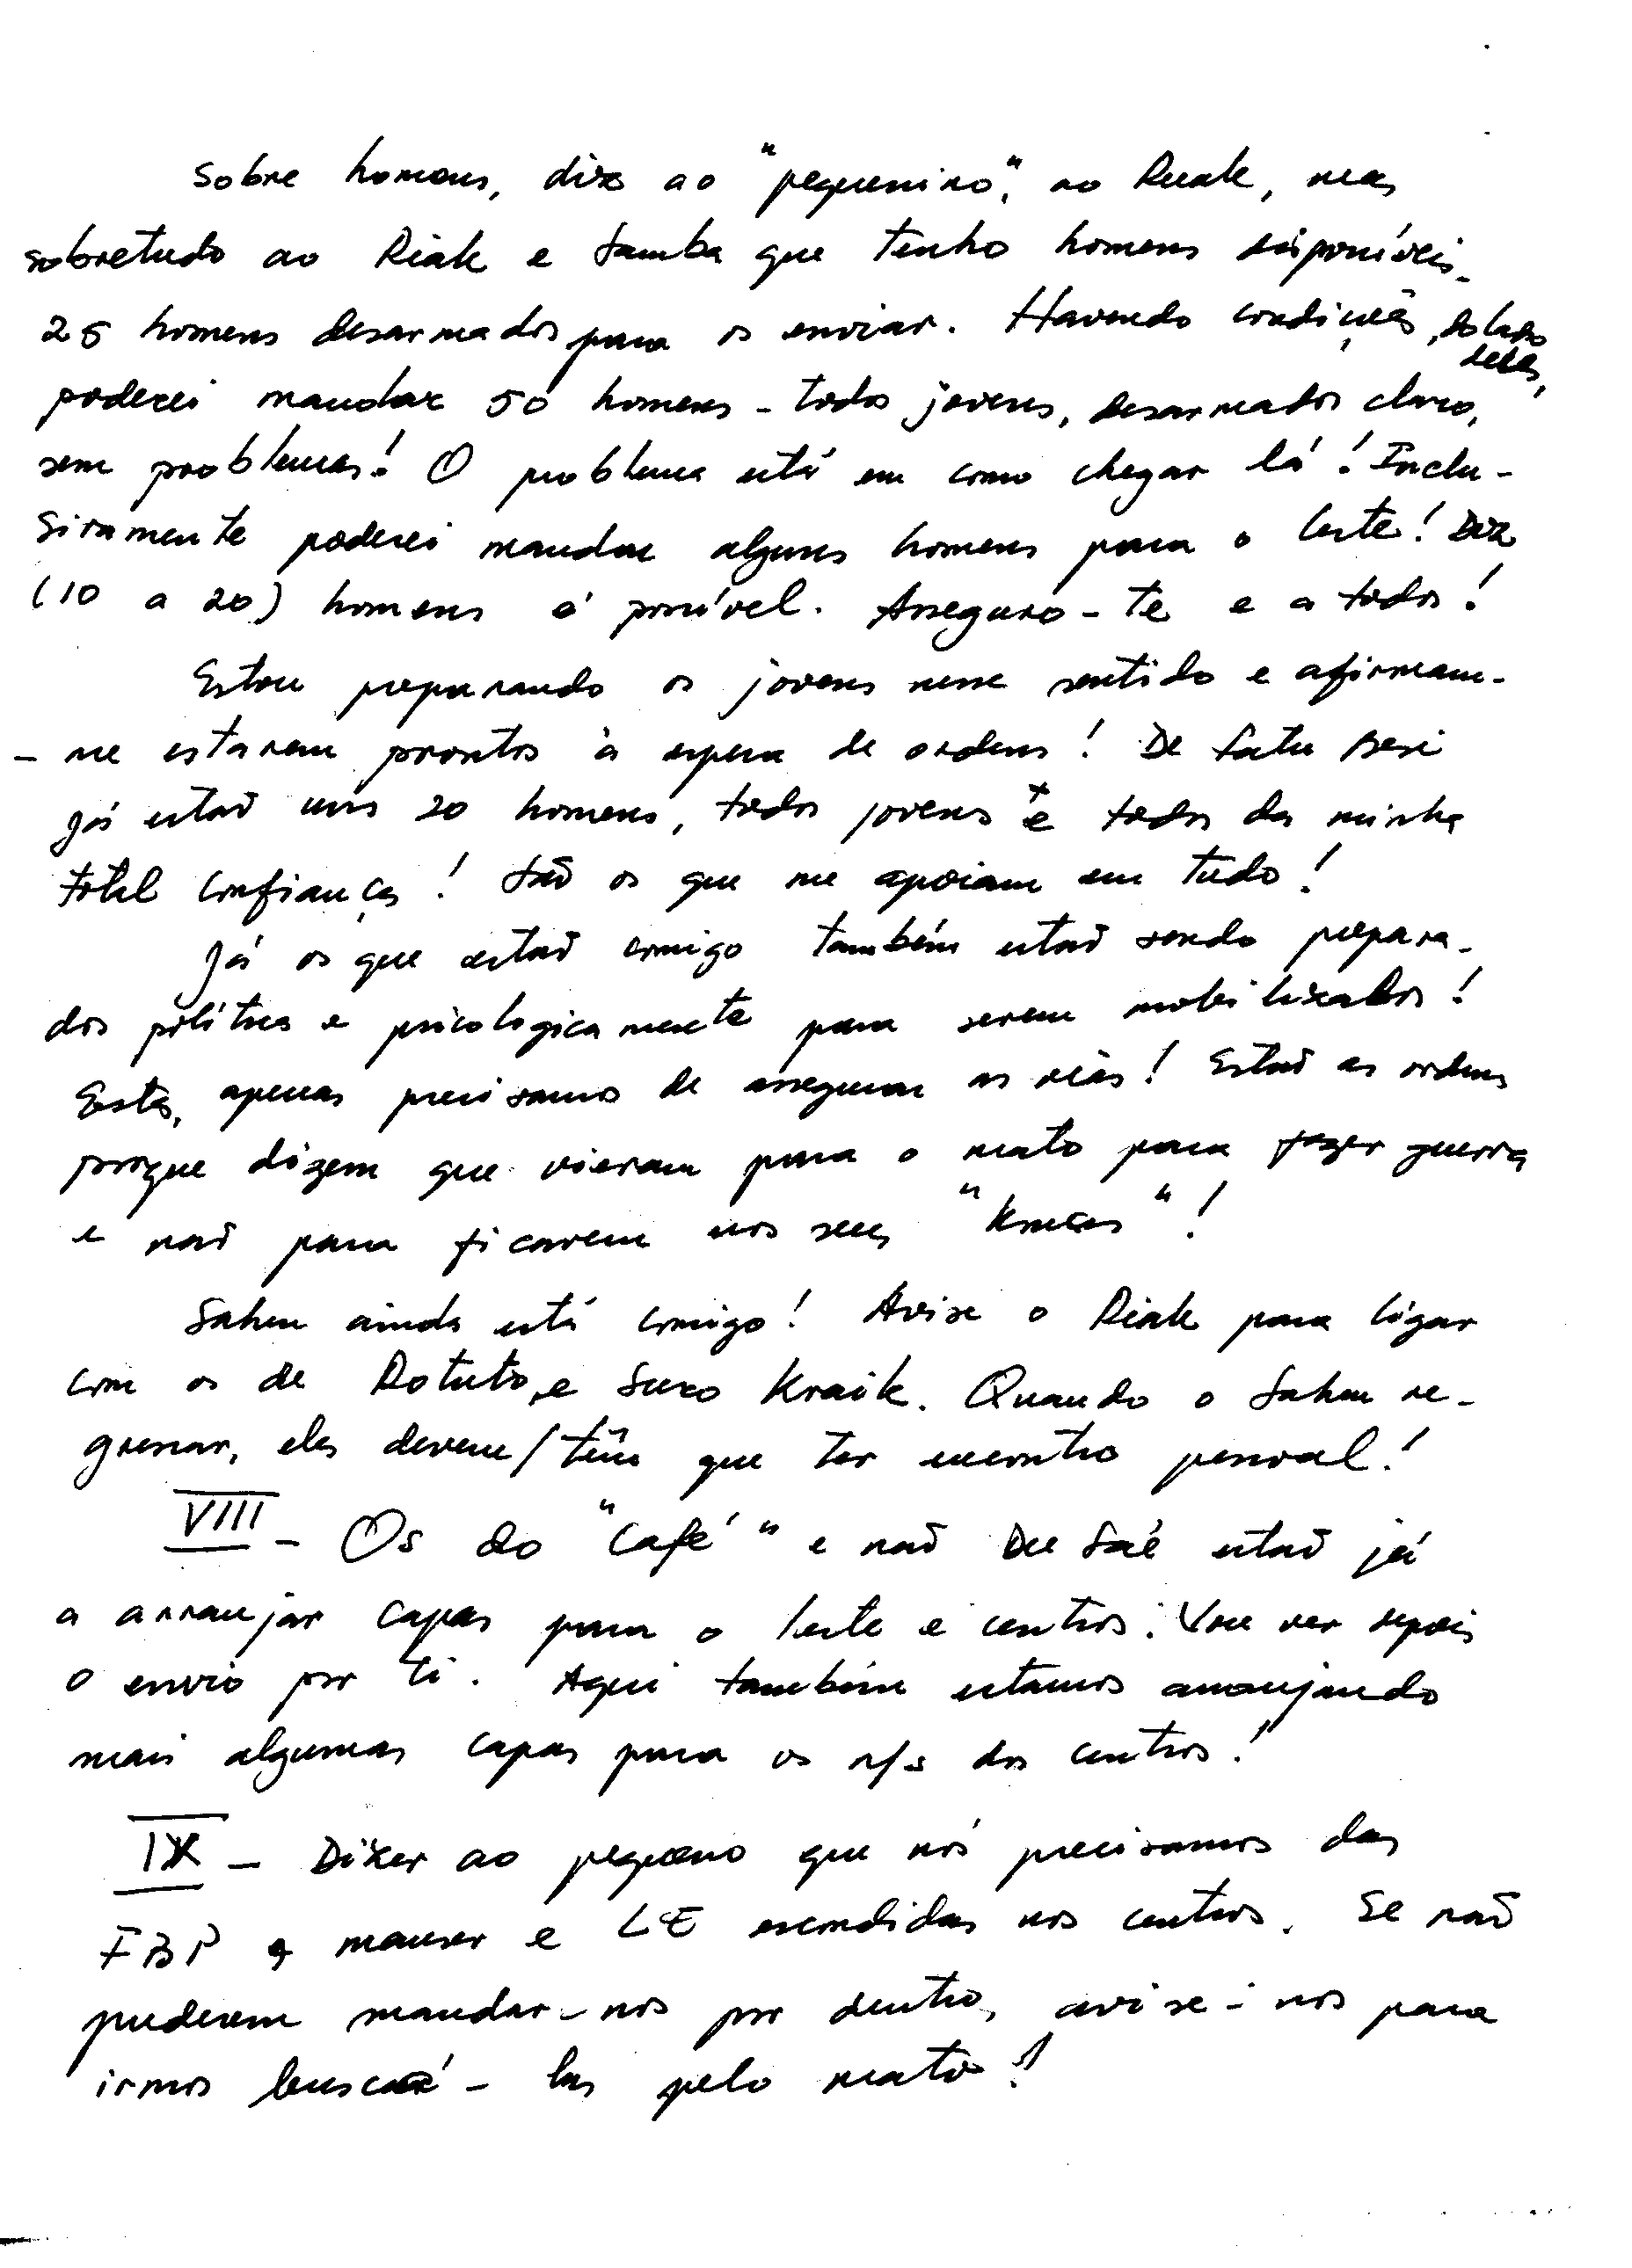 Sobre homens, diz ao "pequenino", ao Ruak, mas
sobretudo ao Riak e Samba que tenho homens disponíveis.
25 homens desarmados para os enviar. Havendo condições, do lado
deles,
poderei mandar 50 homens - todos jovens, desarmados claro,
sem problemas! O problema está em como chegar lá! Inclu-
sivamente poderei mandar alguns homens para o leste! Dez
(10 a 20) homens é possível. Asseguro-te e a todos!
Estou preparando os jovens nesse sentido e afirmam-
- me estarem prontos à espera de ordens! De Fatu Besi
já estão uns 20 homens, todos jovens e todos da minha
total confiança! São os que me apoiam em tudo!
Já os que estão comigo também estão sendo prepara-
dos política e psicologicamente para serem mobilizados!
Estes, apenas precisamos de assegurar as vias! Estão as ordens
porque dizem que vieram para o mato para fazer guerra
e não para ficarem nos seus " "!
Sahen ainda está comigo! Avise o Riak para ligar
com os de Rotuto, e Suro Kraik. Quando o Sahen re-
gressar, eles devem/têm que ter encontro pessoal!
VIII - Os do "Café" e não Du Saé estão já
a arranjar capas para o leste e centros. Vou ver depois
o envio por ti. Aqui também estamos arranjando
mais algumas capas para os n/s dos centros!
IX - Dizer ao pequeno que nós precisamos das
FBP e mauser e LE escondidas nos centros. Se não
puderem mandar-nos por dentro, avise-nos para
irmos buscá-las pelo mato!